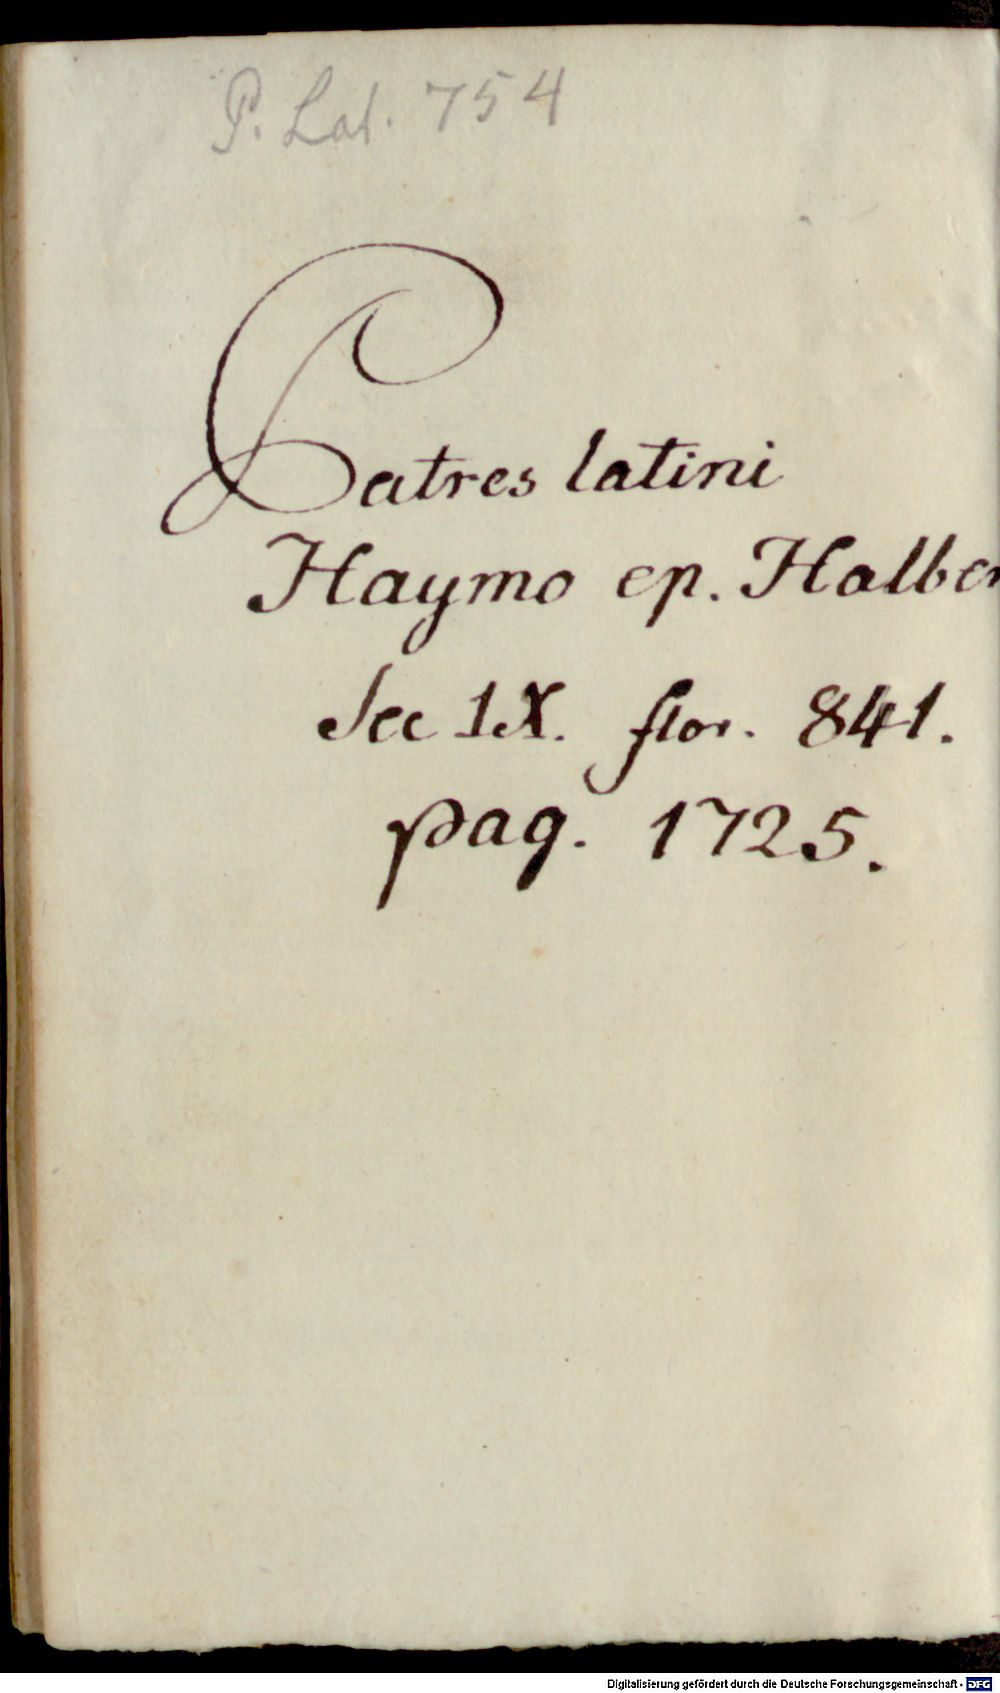 P. Lat. 754
Patres latini
Haymo ep. Halber
Sec IX. flor. 841.
pag. 1725.
Digitalisierung gefördert durch die Deutsche Forschungsgemeinschaft - DFG